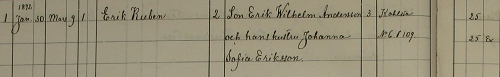 1892
1 Jan. 30 May 9 1 Erik Ruben 2 Son Erik Wilhelm Andersson 3 25
och hans hustru Johanna No C. f. 109. 25 Ex
Sofia Eriksson.